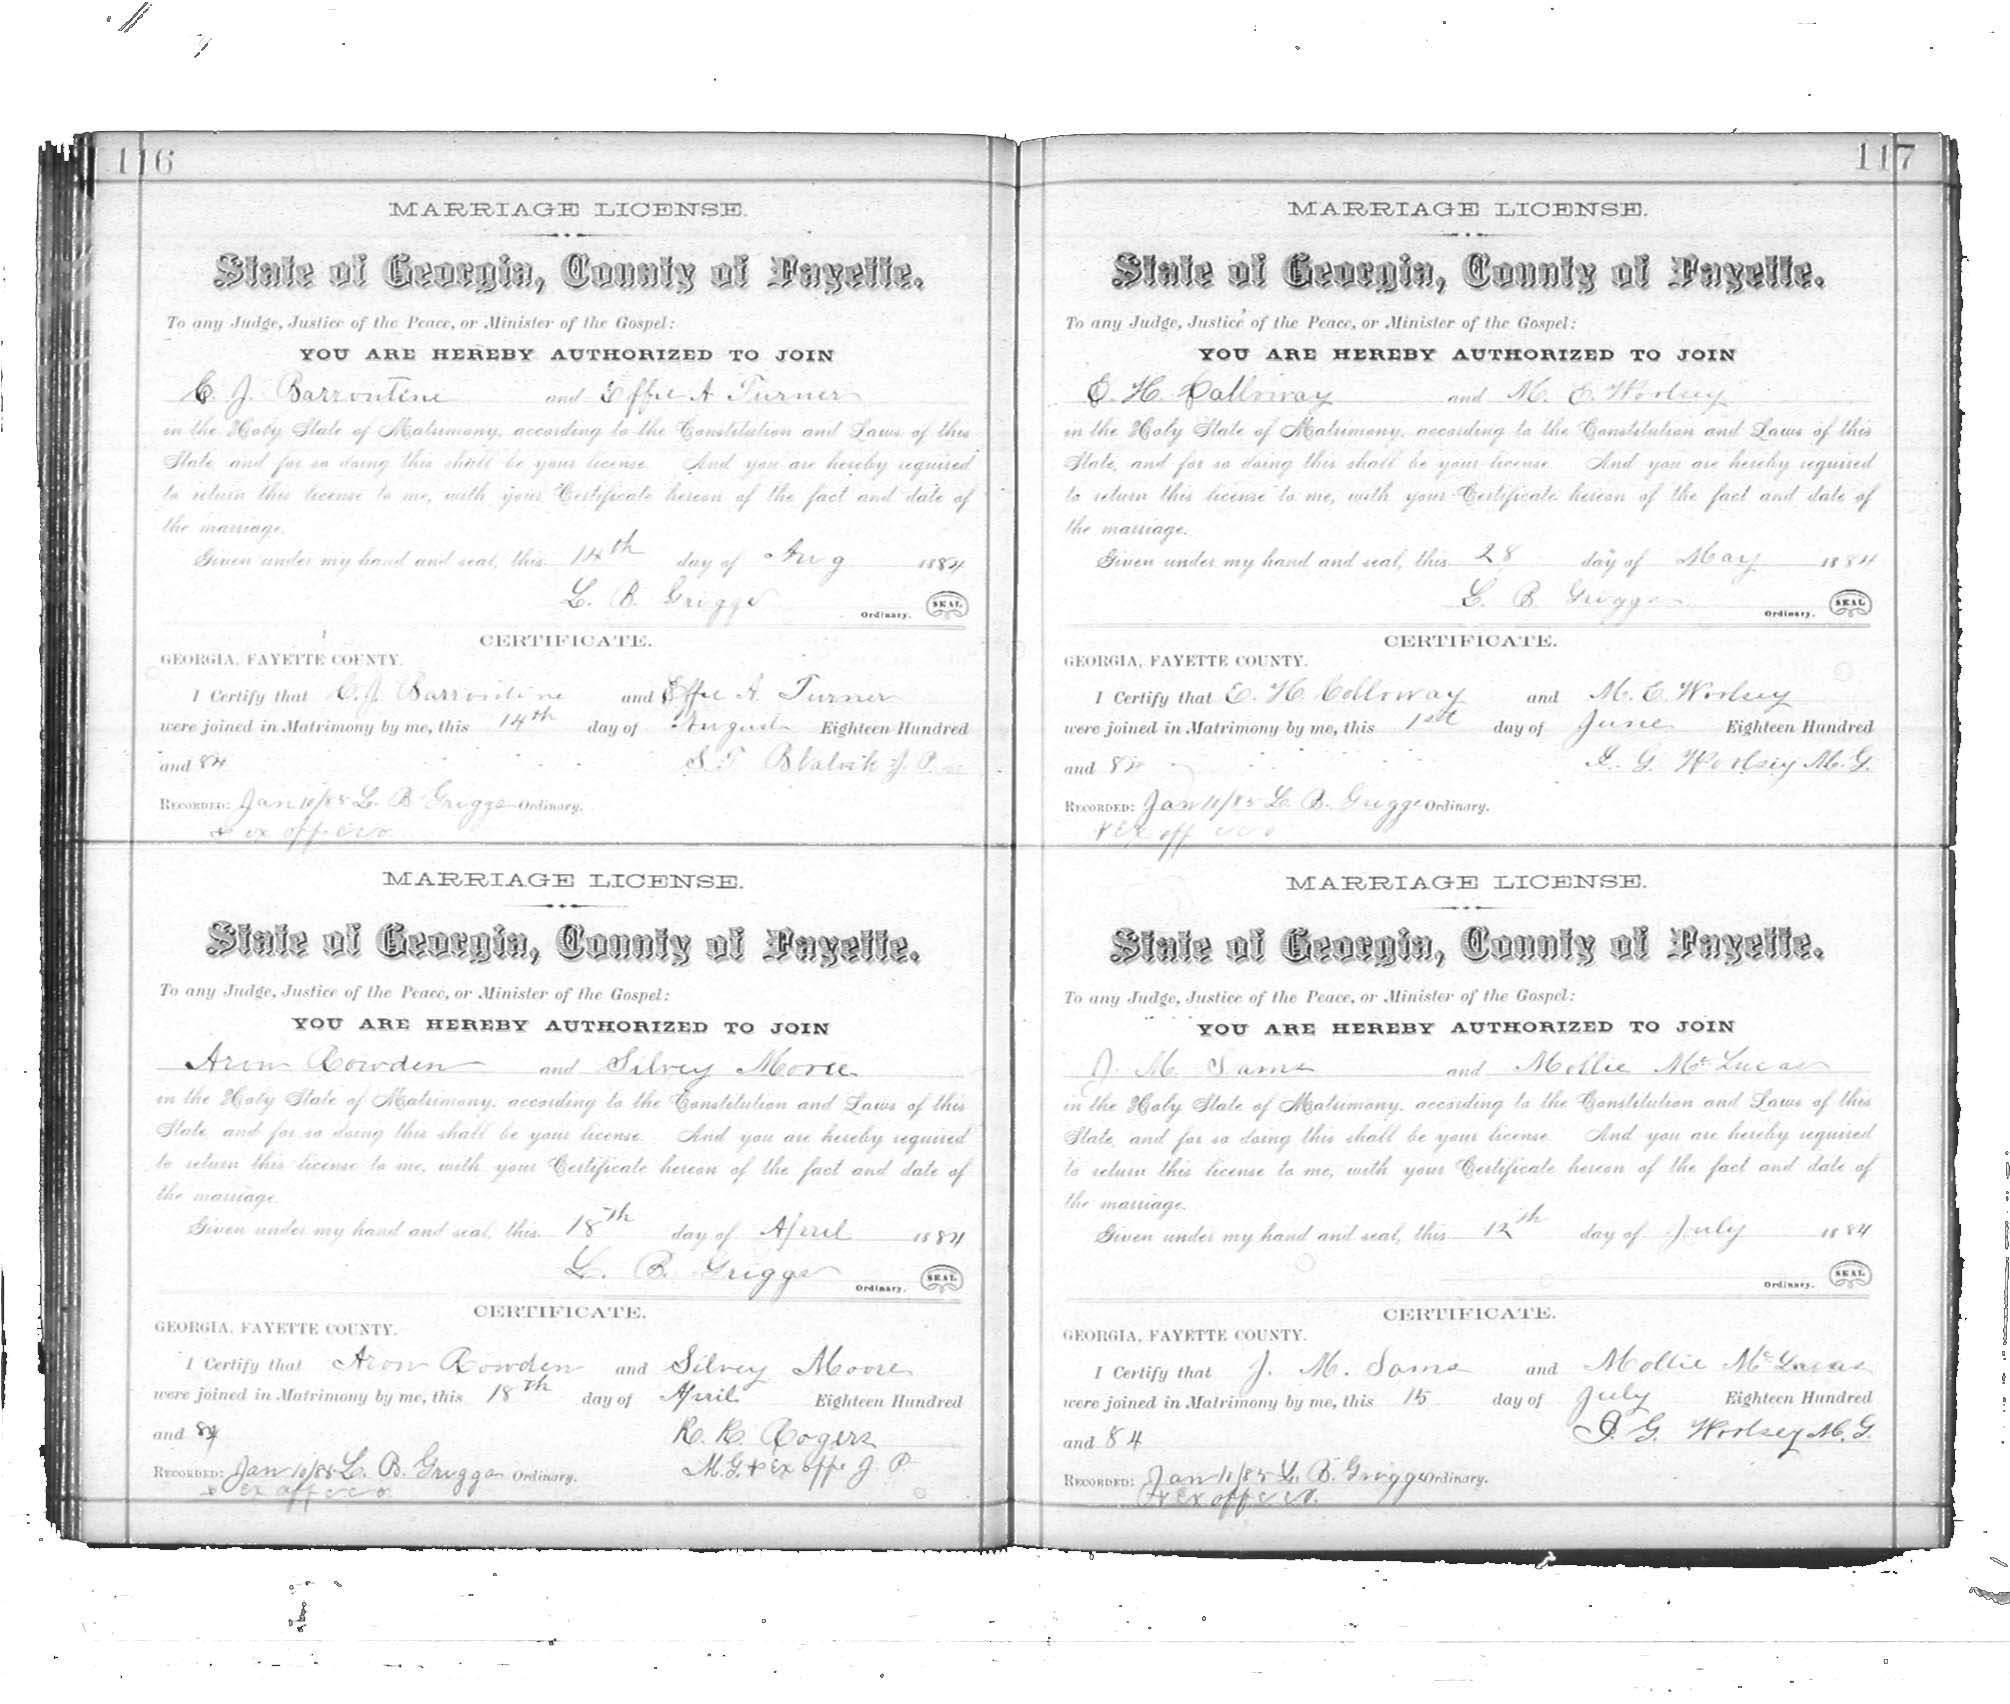 116
MARRIAGE LICENSE.
State of Georgia, County of Fayette.
To any Judge, Justice of the Peace, or Minister of the Gospel:
YOU ARE HEREBY AUTHORIZED TO JOIN
C. J. Barrontine and Effie A Turner
in the Holy State of Matrimony, according to the Constitution and Laws of this
State, and for so doing this shall be your license. And you are hereby required
to return this license to me, with your Certificate hereon of the fact and date of
the marriage.
Given under my hand and seal, this 14th day of Aug 1884
L. B. Griggs
Ordinary. SEAL
CERTIFICATE.
GEORGIA, FAYETTE COUNTY.
I Certify that C. J. Barrontine and Effie A. Turner
were joined in Matrimony by me, this 14th day of August Eighteen Hundred
and 84 S. T. Blalock J. P.
RECORDED: Jan 10/85 L. B Griggs Ordinary.
& ex officio
MARRIAGE LICENSE.
State of Georgia, County of Fayette.
To any Judge, Justice of the Peace, or Minister of the Gospel:
YOU ARE HEREBY AUTHORIZED TO JOIN
Aron Rowden and Silvey Moore
in the Holy State of Matrimony, according to the Constitution and Laws of this
State, and for so doing this shall be your license. And you are hereby required
to return this license to me, with your Certificate hereon of the fact and date of
the marriage.
Given under my hand and seal, this 18th day of April 1884
L. B. Griggs
Ordinary. SEAL
CERTIFICATE.
GEORGIA, FAYETTE COUNTY.
I Certify that Aron Rowden and Silvey Moore
were joined in Matrimony by me, this 18th day of April Eighteen Hundred
and 84 R. R. Rogers
M. G. & ex offi J. P.
RECORDED: Jan 10/85 L. B. Griggs Ordinary.
& ex officio
117
MARRIAGE LICENSE.
State of Georgia, County of Fayette.
To any Judge, Justice of the Peace, or Minister of the Gospel:
YOU ARE HEREBY AUTHORIZED TO JOIN
E. H. Calloway and M. E. Woolsey
in the Holy State of Matrimony, according to the Constitution and Laws of this
State, and for so doing this shall be your license. And you are hereby required
to return this license to me, with your Certificate hereon of the fact and date of
the marriage.
Given under my hand and seal, this 28 day of May 1884
L. B Griggs
Ordinary. SEAL
CERTIFICATE.
GEORGIA, FAYETTE COUNTY.
I Certify that E. H. Colloway and M. E. Woolsey
were joined in Matrimony by me, this 1st day of June Eighteen Hundred
and 84 G. Woolsey M. G.
RECORDED: Jan 11/85 L. B. Griggs Ordinary.
& ex officio
MARRIAGE LICENSE.
State of Georgia, County of Fayette.
To any Judge, Justice of the Peace, or Minister of the Gospel:
YOU ARE HEREBY AUTHORIZED TO JOIN
J. M. Sams and Mollie McLucas
in the Holy State of Matrimony, according to the Constitution and Laws of this
State, and for so doing this shall be your license. And you are hereby required
to return this license to me, with your Certificate hereon of the fact and date of
the marriage.
Given under my hand and seal, this 12th day of July 1884
Ordinary. SEAL
CERTIFICATE.
GEORGIA, FAYETTE COUNTY.
I Certify that J. M. Sams and Mollie McLucas
were joined in Matrimony by me, this 15 day of July Eighteen Hundred
and 84 G. Woolsey M. G.
RECORDED: Jan 11/85 L. B. Griggs Ordinary.
& ex officio